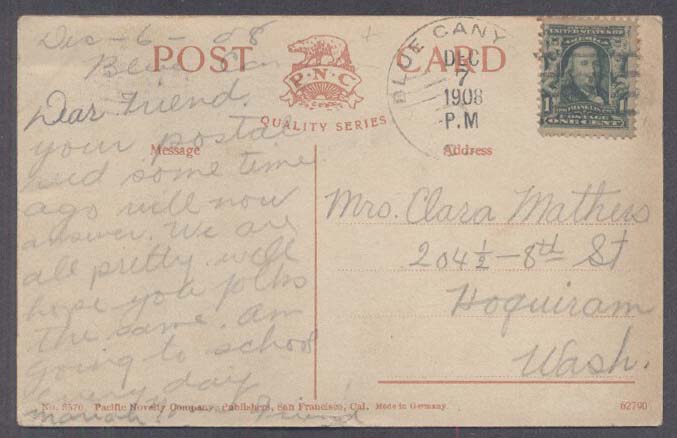 Dec - 6 - 08
POST CARD
P.N.C
QUALITY SERIES
BLUE CANY
DEC
7
1908
P.M
UNITED STATES OF AMERICA
FRANKLIN
POSTAGE
ONE CENT
1 1
Message
Dear Friend.
your postal
some time
ago will now
answer. We are
all pretty well
hope you folks
the same. Am
going to school
every day
Friend
Address
Mrs. Clara Mathews
204½ - 8th St
Hoquiram
Wash.
No. 8570 Pacific Novelty Company, Publishers, San Francisco, Cal. Made in Germany.
62790